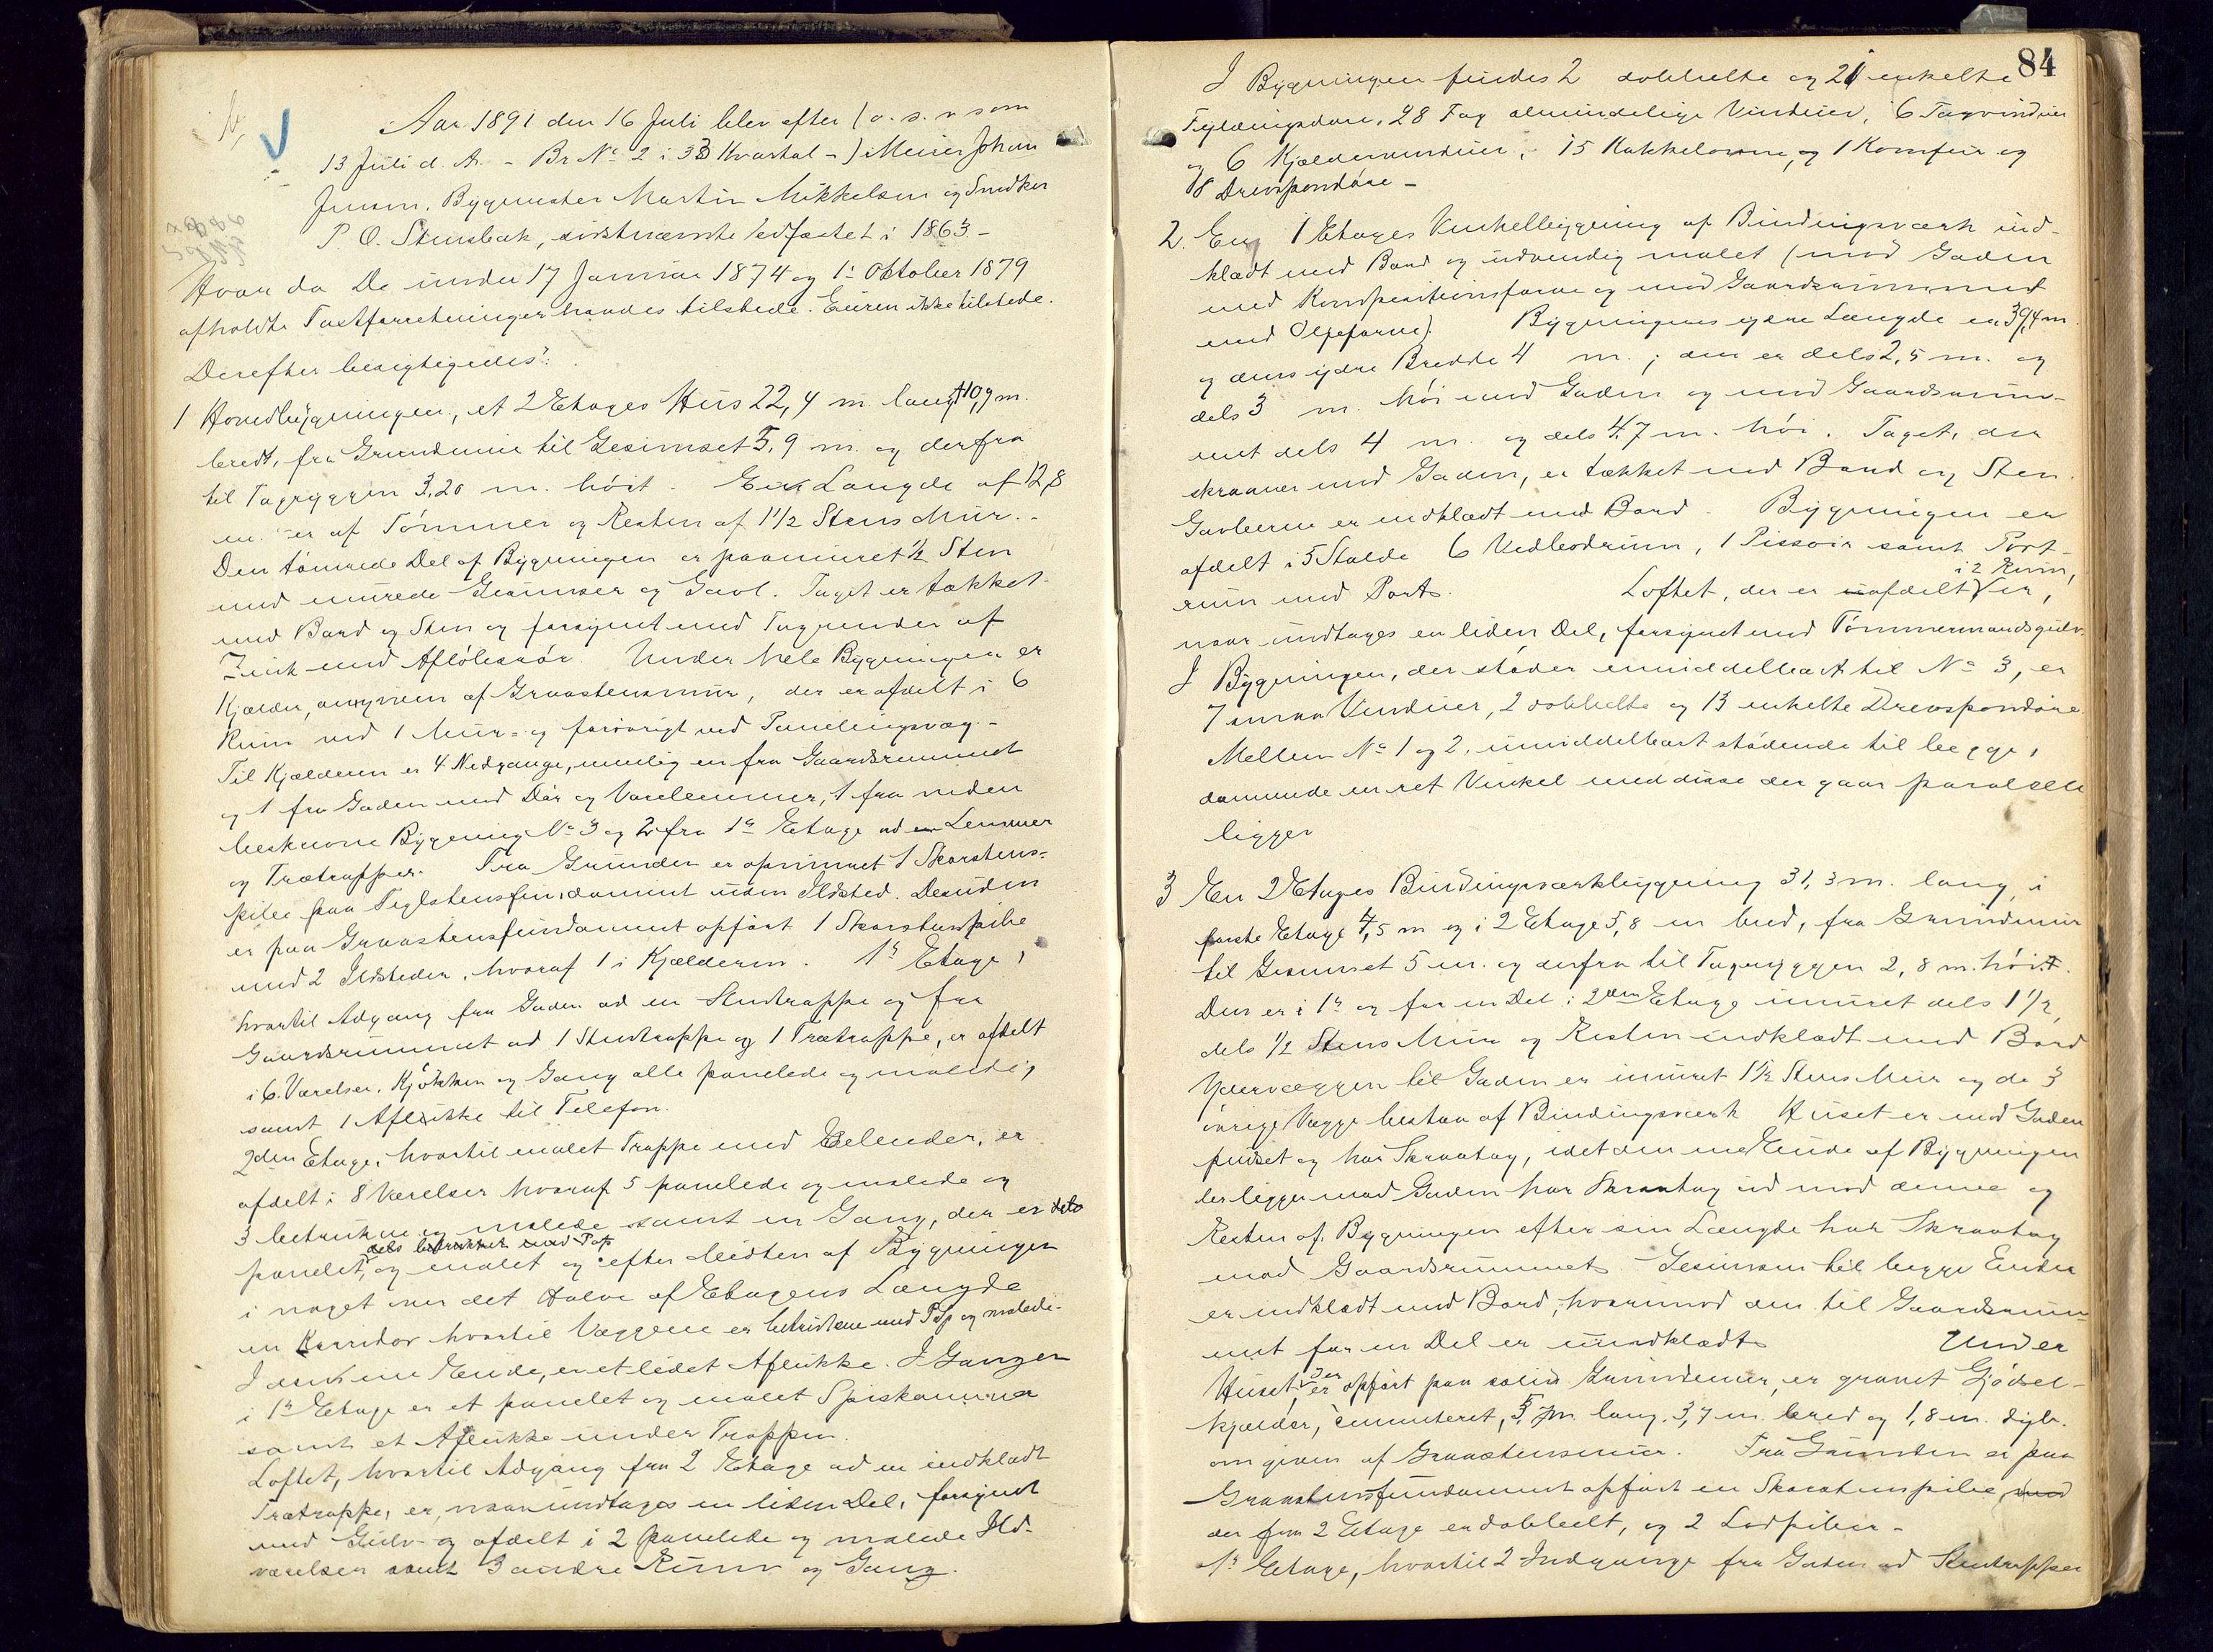 Aar 1891 den 16 Juli blev efter (o. s. v som
13 Juli d. A. - Br No 2 i 33 Kvartal -) Murer Johan
Jensen, Bygmester Martin Mikkelsen og Snedker
P. O. Stensbak, sidstnævnte edfæstet i 1863. -
Hvor da De under 17 Januar 1874 og 1ste Oktober 1879
afholdte Taxtforretninger havdes tilstede. Eieren ikke tilstede.
Derefter besigtigedes:
1 Hovedbygningen, et 2 Etages Hus 22,4 m. langt 10,9 m.
bredt, fra Grundmur til Gesimset 5,9 m. og derfra
til Tagryggen 3,20 m. høit. En Længde af 12,8
m. er af Tømmer og Resten af 1 1/2 Stens Mur. -
Den tømrede Del af Bygningen er paamuret 1/2 Sten
med murede Gesimser og Gavl. Taget er tækket
med Bord og Sten og forsynet med Tagrender af
Zink med Afløbsrør. Under hele Bygningen er
Kjælder, omgiven af Graastensmur, der er afdelt i 6
Rum ved 1 Mur- og forøvrigt ved Panelingsvæg. -
Til Kjælderen er 4 Nedgange, nemlig en fra Gaardsrummet
og 1 fra Gaden med Dør og Vareslemmer, 1 fra neden
beskrevne Bygning No 3 og 2 fra 1ste Etage ad Lemmer
og Trætrapper. Fra Grunden er opmuret 1 Skorstens-
pibe paa Teglstensfundament uden Ildsted. Desuden
er paa Graastensfundament opført 1 Skorstenspibe
med 2 Ildsteder, hvoraf 1 i Kjælderen. 1ste Etage,
hvortil Adgang fra Gaden ad en Stentrappe og fra
Gaardsrummet ad 1 Stentrappe og 1 Trætrappe, er afdelt
i 6 Værelser, Kjøkken og Gang alle panelede og malede,
samt 1 Aflukke til Telefon.
2den Etage, hvortil malet Trappe med Gelender, er
afdelt i 8 Værelser hvoraf 5 panelede og malede og
3 betrukne og malede samt en Gang, der er dels
panelet, dels betrukket med Pap og malet og efter Midten af Bygningen
i noget over det Halve af Etagens Længde
en Korridor hvortil Væggene er betrukne med Pap og malede.
I den ene Ende, er et lidet Aflukke. I Gangen
i 1ste Etage er et panelet og malet Spiskammer
samt et Aflukke under Trappen.
Loftet, hvortil Adgang fra 2 Etage ad en indklædt
Trætrappe, er, naar undtages en liden Del, forsynet
med Gulv og afdelt i 2 panelede og malede Ild-
værelser samt 3 andre Rum og Gang.
84
I Bygningen findes 2 dobbelte og 21 enkelte
Fyldingsdøre, 28 Fag almindelige Vinduer, 6 Tagvinduer
og 6 Kjældervinduer, 15 Kakkelovne, og 1 Komfur og
18 Drevspondøre -
2. En 1 Etages Vinkelbygning af Bindingsværk ind-
klædt med Bord og udvendig malet (mod Gaden
med Kompositionsfarve og mod Gaardsrummet
med Oljefarve). Bygningens ydre Længde er 39,4 m.
og dens ydre Bredde 4 m.; den er dels 2,5 m. og
dels 3 m. høi mod Gaden og mod Gaardsrum-
met dels 4 m. og dels 4,7 m. høi. Taget, der
skraaner mod Gaden, er tækket med Bord og Sten.
Gavlerne er indklædt med Bord. Bygningen er
afdelt i 5 Stalde 6 Vedbodrum, 1 Pissoir samt Port-
rum med Port. Loftet, der er afdelt i 2 Rum, er,
naar undtages en liden Del, forsynet med Tømmermandsgulv.
I Bygningen, der støder umiddelbart til No 3, er
7 smaa Vinduer, 2 dobbelte og 13 enkelte Drevspondøre.
Mellem No 1 og 2, umiddelbart stødende til begge,
dannende en ret Vinkel med disse der gaar paralelle
ligger
3 En 2 Etages Bindingsværksbygning 31,3 m. lang, i
første Etage 4,5 m og i 2 Etage 5,8 m bred, fra Grundmur
til Gesimset 5 m. og derfra til Tagryggen 2,8 m. høi.
Den er i 1ste og for en Del i 2den Etage inmuret dels 1 1/2,
dels 1/2 Stens Mur og Resten indklædt med Bord
Ydervæggen til Gaden er inmuret 1 1/2 Stens Mur og de 3
øvrige Vægge bestaa af Bindingsværk Huset er mod Gaden
pudset og har Skraatag, idet den ene Ende af Bygningen
der ligger mod Gaden har Skraatag ud mod denne og
Resten af Bygningen efter sin Længde har Skraatag
mod Gaardsrummet. Gesimsen til begge Ender
er indklædt med Bord, hvorimod den til Gaardsrum-
met for en Del er uindklædt. Under
Huset, der er opført paa solid Grundmur, er gravet Gjødsel-
kjælder, cementeret, 5, m. lang, 3,7 m. bred og 1,8 m. dyb.
omgiven af Graastensmur. Fra Grunden er paa
Graastensfundament opført en Skorstenspibe, med
der fra 2 Etage er dobbelt, og 2 Lodpiber. -
1ste Etage, hvortil 2 Indgange fra Gaden ad Stentrapper